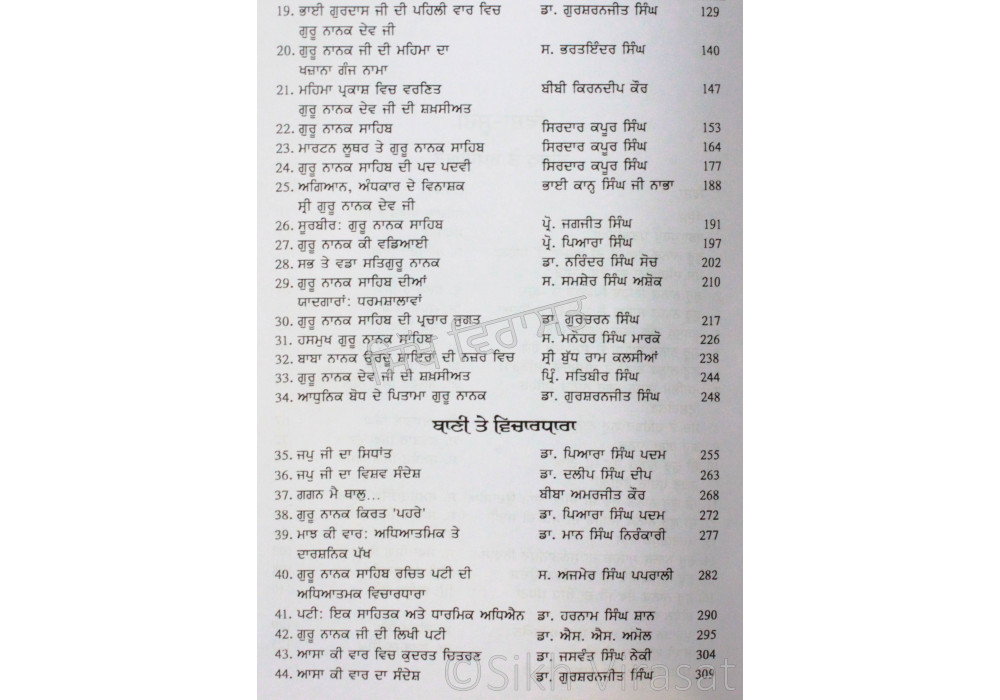 19. ਭਾਈ ਗੁਰਦਾਸ ਜੀ ਦੀ ਪਹਿਲੀ ਵਾਰ ਵਿਚ ਡਾ. ਗੁਰਸ਼ਰਨਜੀਤ ਸਿੰਘ 129
ਗੁਰੂ ਨਾਨਕ ਦੇਵ ਜੀ
20. ਗੁਰੂ ਨਾਨਕ ਜੀ ਦੀ ਮਹਿਮਾ ਦਾ ਸ. ਭਰਤਇੰਦਰ ਸਿੰਘ 140
ਖਜ਼ਾਨਾ ਗੰਜ ਨਾਮਾ
21. ਮਹਿਮਾ ਪ੍ਰਕਾਸ਼ ਵਿਚ ਵਰਣਿਤ ਬੀਬੀ ਕਿਰਨਦੀਪ ਕੌਰ 147
ਗੁਰੂ ਨਾਨਕ ਦੇਵ ਜੀ ਦੀ ਸ਼ਖ਼ਸੀਅਤ
22. ਗੁਰੂ ਨਾਨਕ ਸਾਹਿਬ ਸਿਰਦਾਰ ਕਪੂਰ ਸਿੰਘ 153
23. ਮਾਰਟਨ ਲੂਥਰ ਤੇ ਗੁਰੂ ਨਾਨਕ ਸਾਹਿਬ ਸਿਰਦਾਰ ਕਪੂਰ ਸਿੰਘ 164
24. ਗੁਰੂ ਨਾਨਕ ਸਾਹਿਬ ਦੀ ਪਦ ਪਦਵੀ ਸਿਰਦਾਰ ਕਪੂਰ ਸਿੰਘ 177
25. ਅਗਿਆਨ, ਅੰਧਕਾਰ ਦੇ ਵਿਨਾਸ਼ਕ ਭਾਈ ਕਾਨ੍ਹ ਸਿੰਘ ਜੀ ਨਾਭਾ 188
ਸ੍ਰੀ ਗੁਰੂ ਨਾਨਕ ਦੇਵ ਜੀ
26. ਸੂਰਬੀਰ: ਗੁਰੂ ਨਾਨਕ ਸਾਹਿਬ ਪ੍ਰੋ. ਜਗਜੀਤ ਸਿੰਘ 191
27. ਗੁਰੂ ਨਾਨਕ ਕੀ ਵਡਿਆਈ ਪ੍ਰੋ. ਪਿਆਰਾ ਸਿੰਘ 197
28. ਸਭ ਤੇ ਵਡਾ ਸਤਿਗੁਰੂ ਨਾਨਕ ਡਾ. ਨਰਿੰਦਰ ਸਿੰਘ ਸੋਚ 202
29. ਗੁਰੂ ਨਾਨਕ ਸਾਹਿਬ ਦੀਆਂ ਸ. ਸਮਸ਼ੇਰ ਸਿੰਘ ਅਸ਼ੋਕ 210
ਯਾਦਗਾਰਾਂ: ਧਰਮਸ਼ਾਲਾਵਾਂ
30. ਗੁਰੂ ਨਾਨਕ ਸਾਹਿਬ ਦੀ ਪ੍ਰਚਾਰ ਜੁਗਤ ਡਾ. ਗੁਰਚਰਨ ਸਿੰਘ 217
31. ਹਸਮੁਖ ਗੁਰੂ ਨਾਨਕ ਸਾਹਿਬ ਸ. ਮਨੋਹਰ ਸਿੰਘ ਮਾਰਕੋ 226
32. ਬਾਬਾ ਨਾਨਕ ਉਰਦੂ ਸ਼ਾਇਰਾਂ ਦੀ ਨਜ਼ਰ ਵਿਚ ਸ੍ਰੀ ਬੁੱਧ ਰਾਮ ਕਲਸੀਆਂ 238
33. ਗੁਰੂ ਨਾਨਕ ਦੇਵ ਜੀ ਦੀ ਸ਼ਖ਼ਸੀਅਤ ਪ੍ਰਿੰ. ਸਤਿਬੀਰ ਸਿੰਘ 244
34. ਆਧੁਨਿਕ ਬੋਧ ਦੇ ਪਿਤਾਮਾ ਗੁਰੂ ਨਾਨਕ ਡਾ. ਗੁਰਸ਼ਰਨਜੀਤ ਸਿੰਘ 248
ਸਿੱਖ ਵਿਰਾਸਤ
ਬਾਣੀ ਤੇ ਵਿਚਾਰਧਾਰਾ
35. ਜਪੁ ਜੀ ਦਾ ਸਿਧਾਂਤ ਡਾ. ਪਿਆਰਾ ਸਿੰਘ ਪਦਮ 255
36. ਜਪੁ ਜੀ ਦਾ ਵਿਸ਼ਵ ਸੰਦੇਸ਼ ਡਾ. ਦਲੀਪ ਸਿੰਘ ਦੀਪ 263
37. ਗਗਨ ਮੈ ਥਾਲੁ... ਬੀਬਾ ਅਮਰਜੀਤ ਕੌਰ 268
38. ਗੁਰੂ ਨਾਨਕ ਕਿਰਤ 'ਪਹਰੇ' ਡਾ. ਪਿਆਰਾ ਸਿੰਘ ਪਦਮ 272
39. ਮਾਝ ਕੀ ਵਾਰ: ਅਧਿਆਤਮਿਕ ਤੇ ਡਾ. ਮਾਨ ਸਿੰਘ ਨਿਰੰਕਾਰੀ 277
ਦਾਰਸ਼ਨਿਕ ਪੱਖ
40. ਗੁਰੂ ਨਾਨਕ ਸਾਹਿਬ ਰਚਿਤ ਪਟੀ ਦੀ ਸ. ਅਜਮੇਰ ਸਿੰਘ ਪਪਰਾਲੀ 282
ਅਧਿਆਤਮਕ ਵਿਚਾਰਧਾਰਾ
41. ਪਟੀ: ਇਕ ਸਾਹਿਤਕ ਅਤੇ ਧਾਰਮਿਕ ਅਧਿਐਨ ਡਾ. ਹਰਨਾਮ ਸਿੰਘ ਸ਼ਾਨ 290
42. ਗੁਰੂ ਨਾਨਕ ਜੀ ਦੀ ਲਿਖੀ ਪਟੀ ਡਾ. ਐਸ. ਐਸ. ਅਮੋਲ 295
43. ਆਸਾ ਕੀ ਵਾਰ ਵਿਚ ਕੁਦਰਤ ਚਿਤਰਣ ਡਾ. ਜਸਵੰਤ ਸਿੰਘ ਨੇਕੀ 304
44. ਆਸਾ ਕੀ ਵਾਰ ਦਾ ਸੰਦੇਸ਼ ਡਾ. ਗੁਰਸ਼ਰਨਜੀਤ ਸਿੰਘ 309
©Sikh Virasat